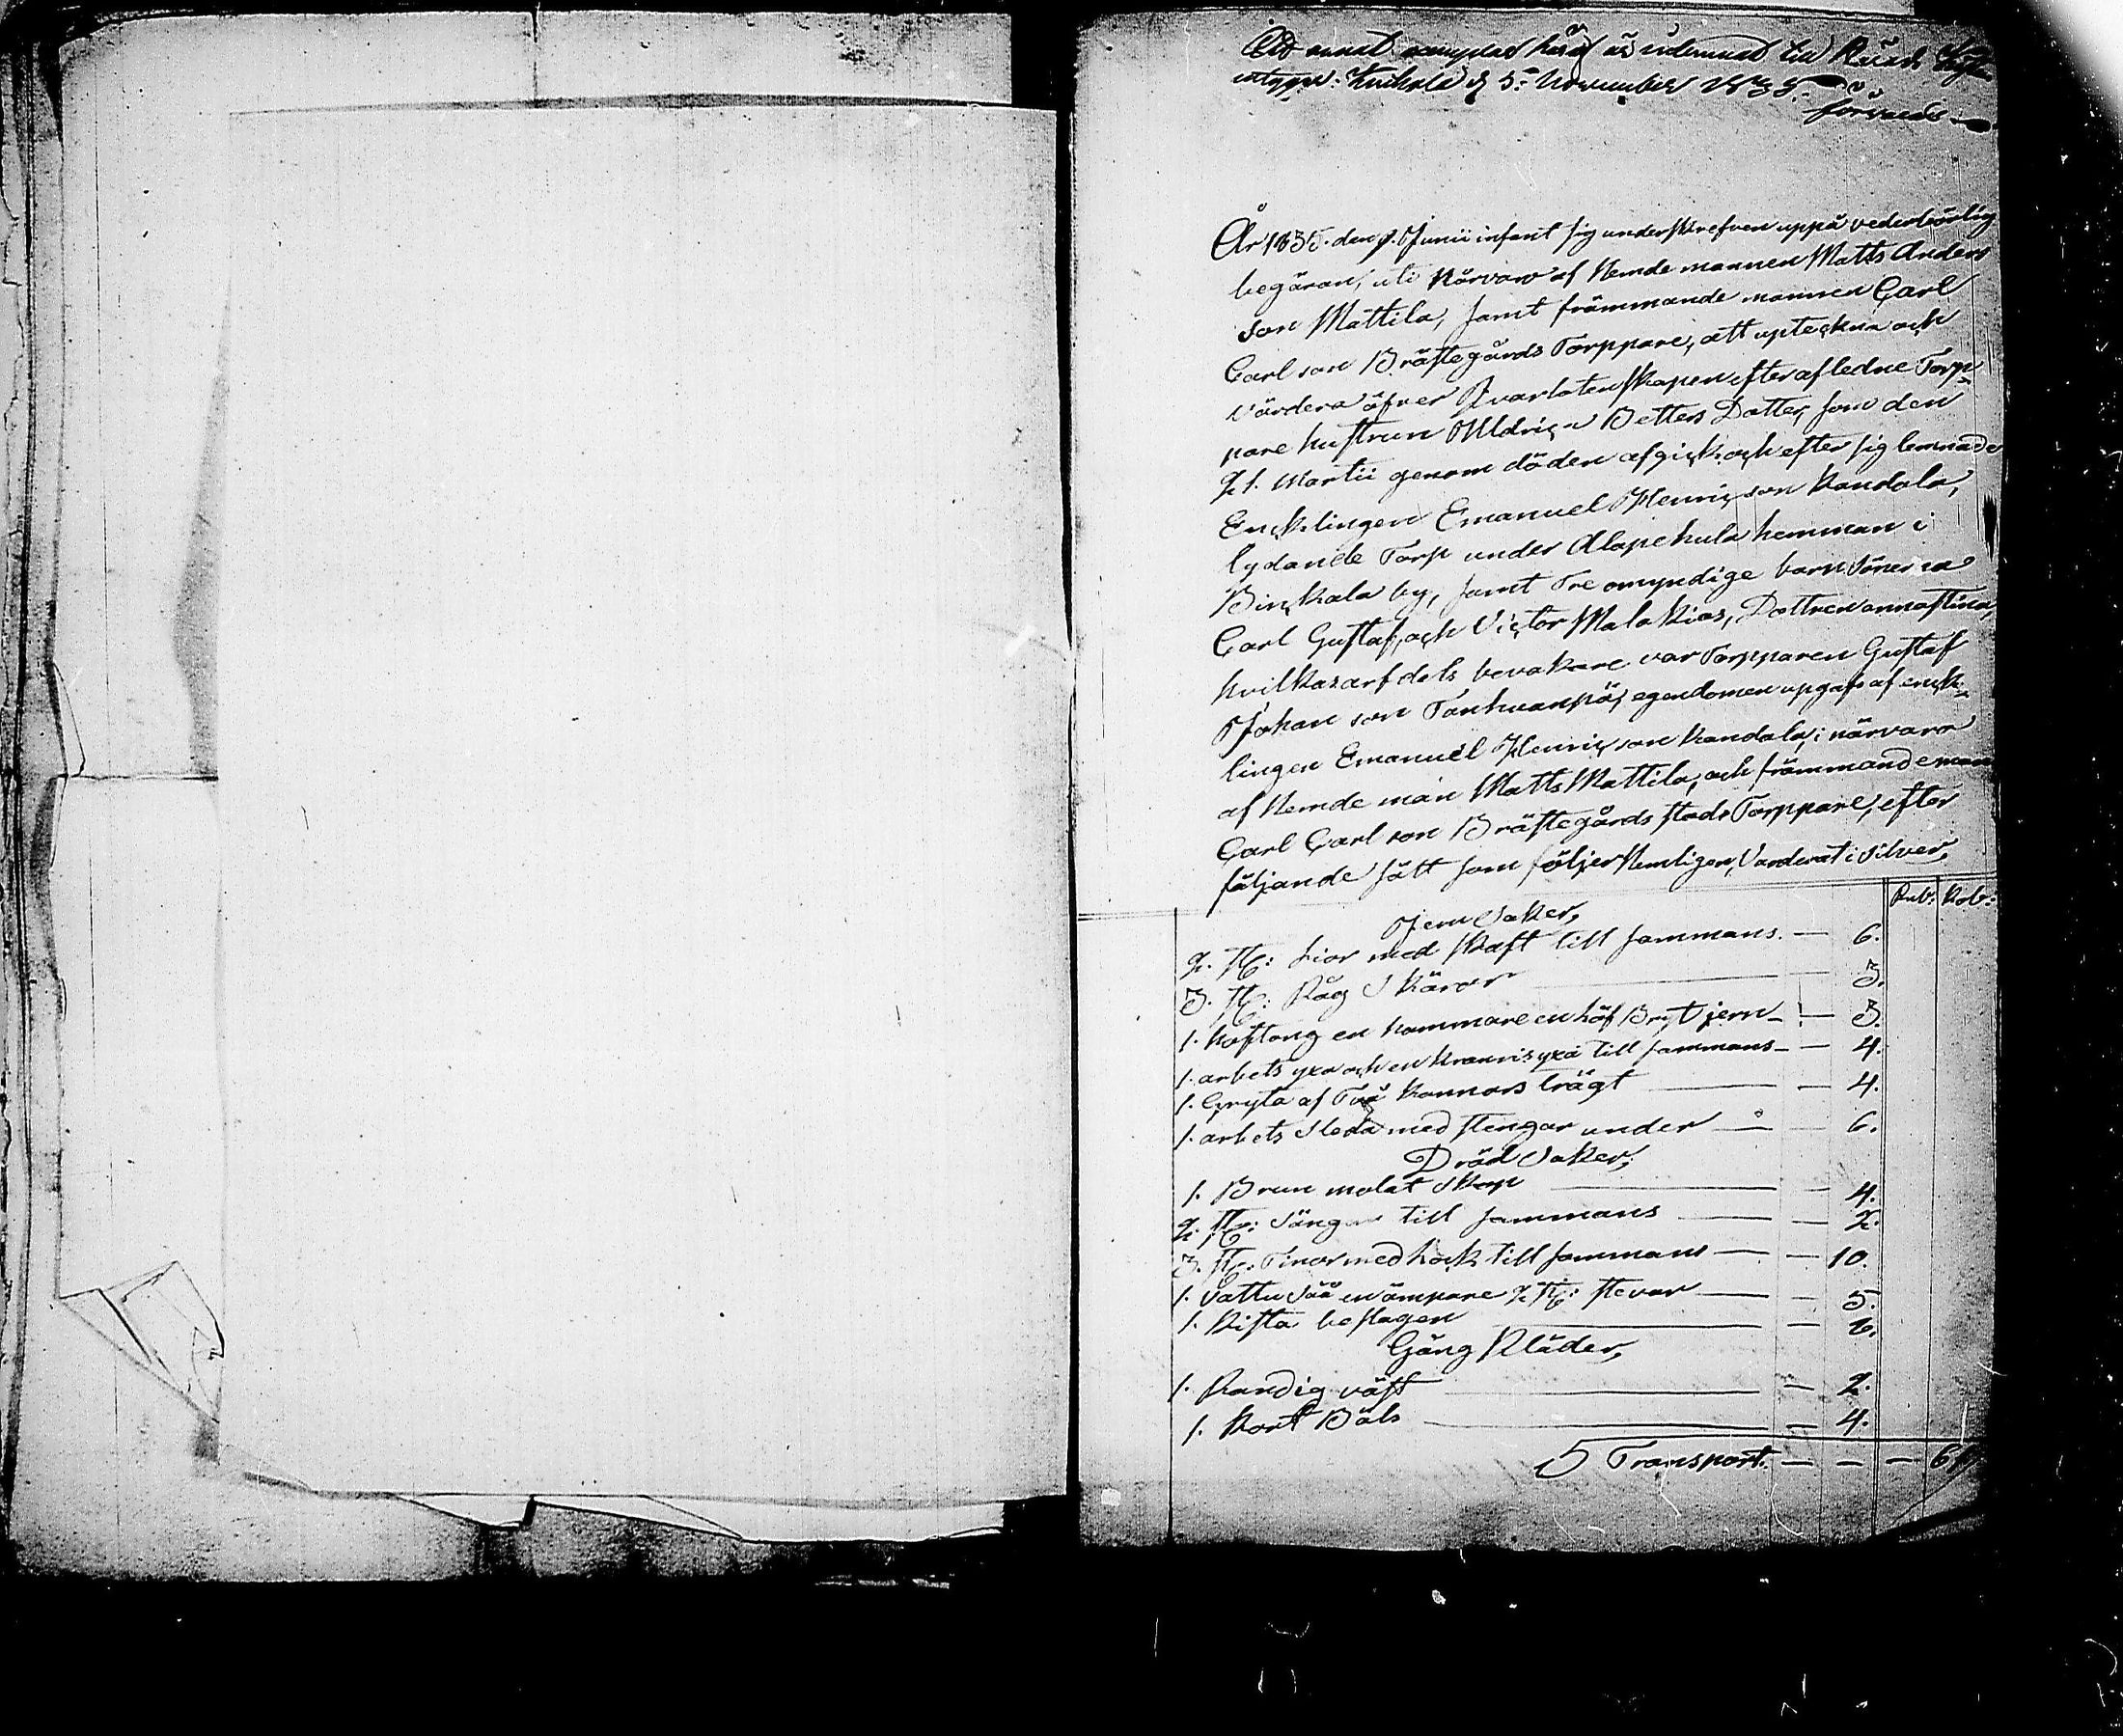 Ett annat exemplar häraf är inlemnat till
intygar. Kuckola d 5: November 1835.
förvaras
År 1835. den 9. Junii infant sig underskrefven uppå vederbörlig
begäran, uti Närvaro af Nemdemannen Matts Anders
son Mattila, samt främmande mannen Carl
Carlson Brästegårds Torppare, att upteckna och
Värdera öfver Qvarlotenskapen efter afledne Torp-
pare hustrun Uldrica Betters Dotter, som den
21. Martii genom döden afgick, och efter sig lemnade
Encklingen Emanuel Henricson Kandola,
lydande Torp under Alapekula hemman i
Binckala by, samt Tre omyndige barn Sönerna
Carl Gustaf, och Victor Malakias, Dottren annastina,
hvilkas arfdels bevakare var Torpparen Gustaf
Johan son Tanhuanpä, egendomen upgafs af enck-
lingen Emanuel Henricson Kandola, i närvaro
af Nemde man Matts Mattila, och främmande man
Carl Carlson Brästegårds stads Torppare, efter
följande sätt som följer Nemligen, Varderat i Silver,
Rub: Kob:
Jern Saker,
2. St: Lior med skaft till sammans. — 6.
3. St: Råg Skäror — 3.
1. Hoftong en hammare en höf Brytjern — 3.
1. arbets yxa och en Kranvis yxa till sammans — 4.
1. Gryta af Två Kannors trägt — 4.
1. arbets Släda med stengar under — 6.
Dräd Saker,
1. Brun malat Skap — 4.
2. St: Sängar till sammans — 2.
3. St: Tinor med lock till sammans — 10.
1. Vattu Såå en ämpare 2 St: stevar — 5.
1. Kista beslagen — 6.
Gång Kläder,
1. Randig väst — 2.
1. Kort Bäls — 4.
Transport. — — — 6